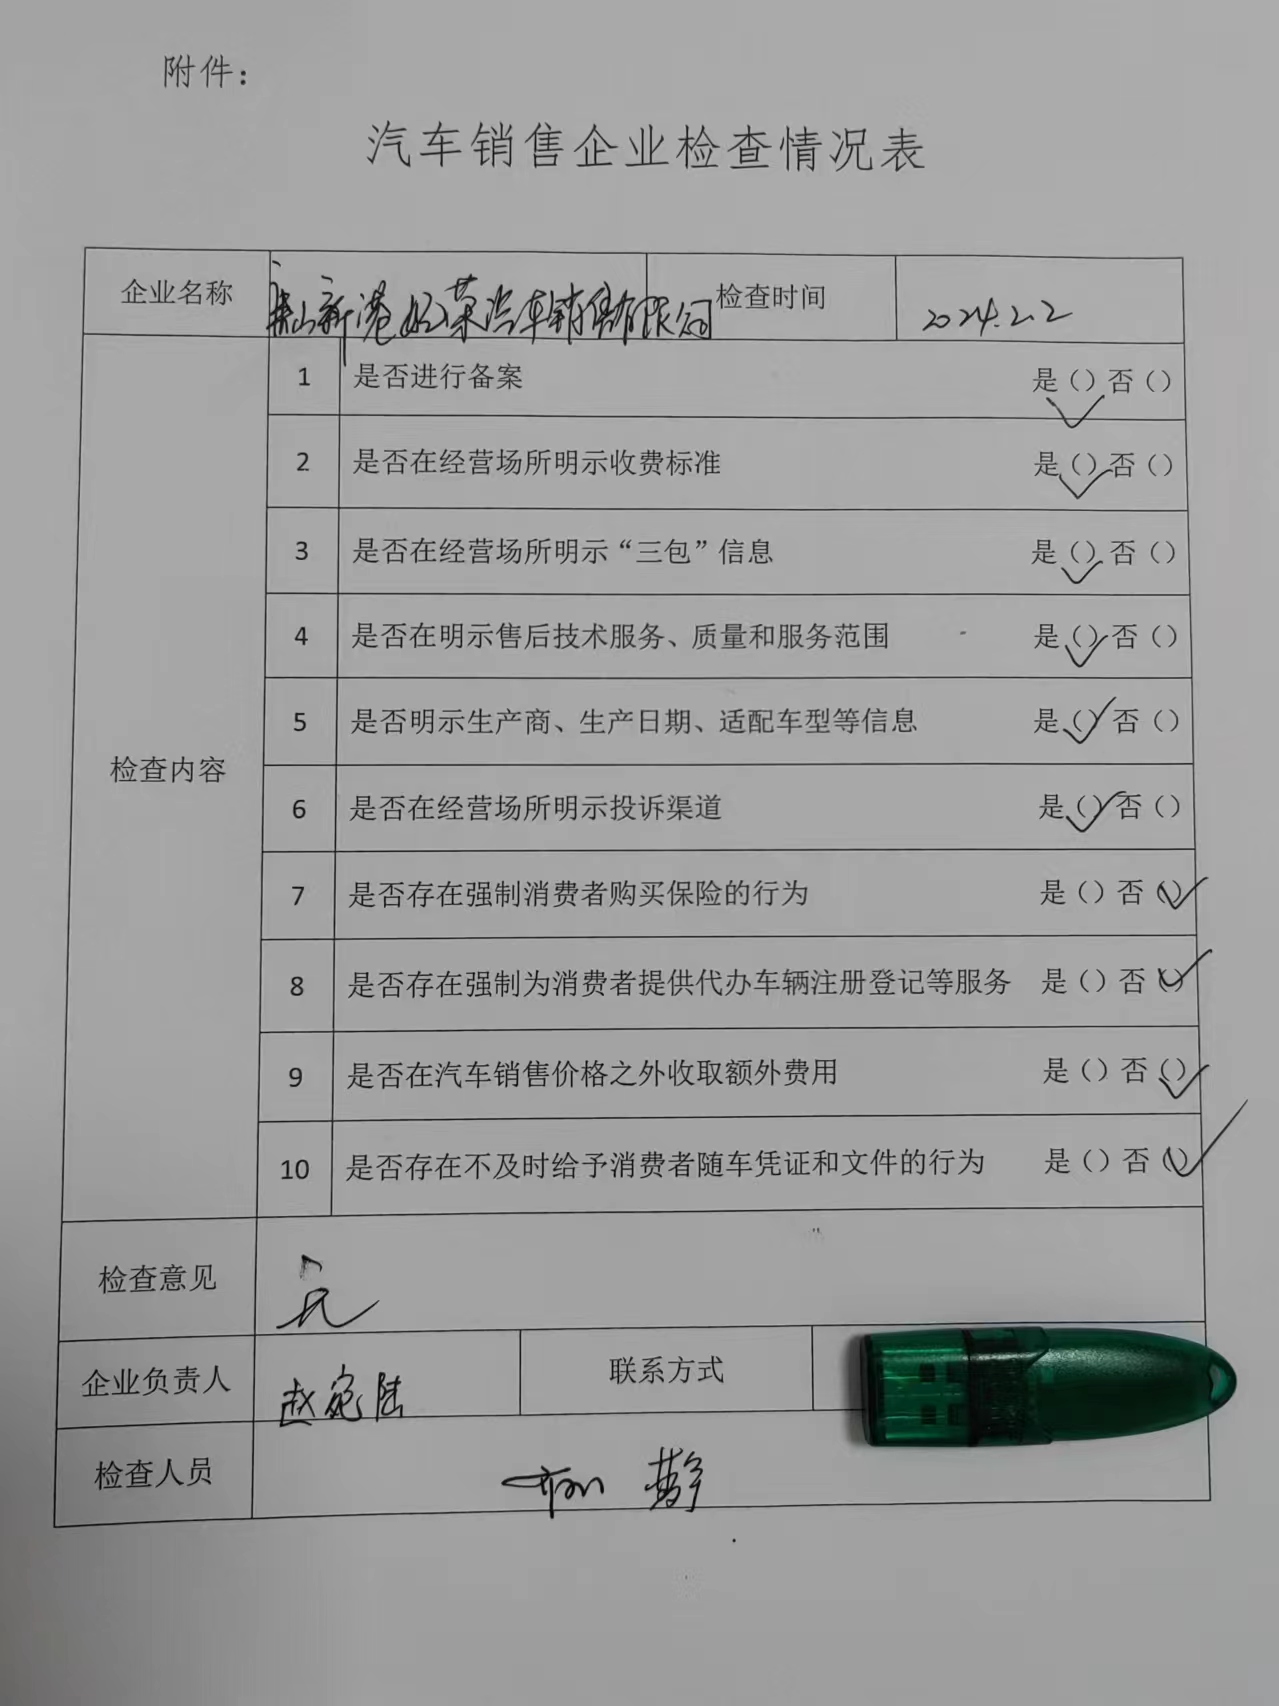 附件：
汽车销售企业检查情况表
企业名称 唐山新港好荣汽车销售有限公司 检查时间 2024.2.2
检查内容
1 是否进行备案 是（）否（）
2 是否在经营场所明示收费标准 是（）否（）
3 是否在经营场所明示“三包”信息 是（）否（）
4 是否在明示售后技术服务、质量和服务范围 是（）否（）
5 是否明示生产商、生产日期、适配车型等信息 是（）否（）
6 是否在经营场所明示投诉渠道 是（）否（）
7 是否存在强制消费者购买保险的行为 是（）否（）
8 是否存在强制为消费者提供代办车辆注册登记等服务 是（）否（）
9 是否在汽车销售价格之外收取额外费用 是（）否（）
10 是否存在不及时给予消费者随车凭证和文件的行为 是（）否（）
检查意见
企业负责人 赵宛陆 联系方式
检查人员